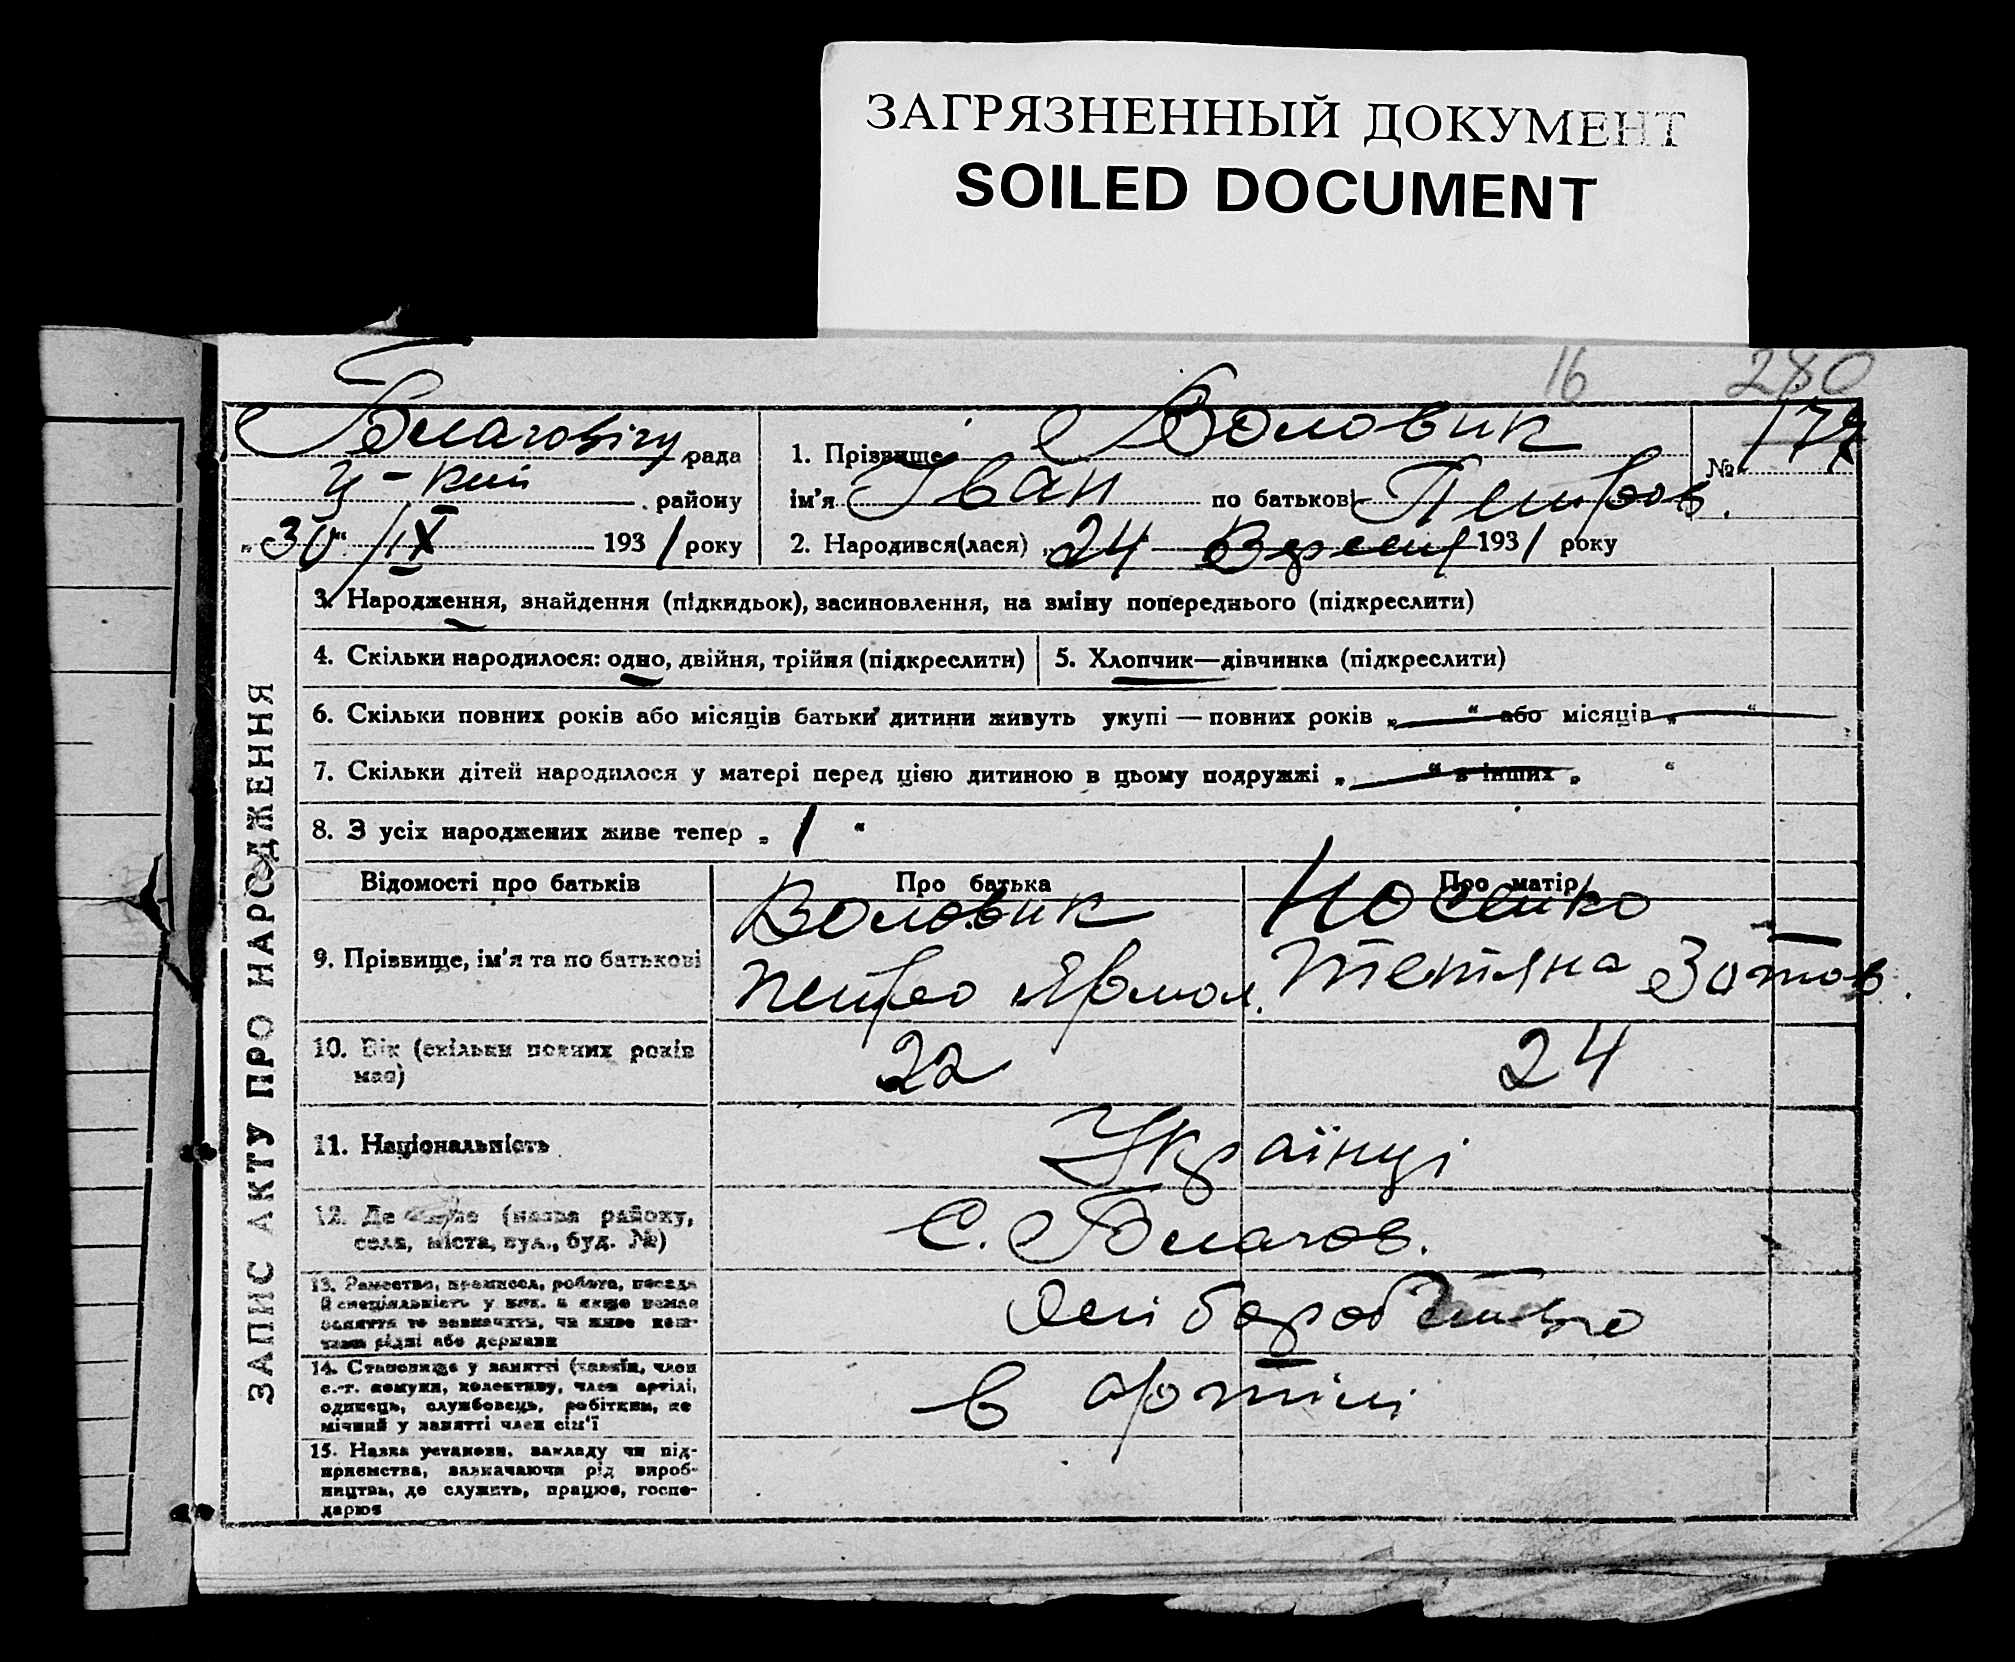 ЗАГРЯЗНЕННЫЙ ДОКУМЕНТ
SOILED DOCUMENT
16 280
рада
району
„30“ /IX 1931 року
1. Прізвище Воловик
ім'я Іван по батькові Петров.
2. Народився(лася) „24 Вересня 1931 року
№
ЗАПИС АКТУ ПРО НАРОДЖЕННЯ
3. Народження, знайдення (підкидьок), засиновлення, на зміну попереднього (підкреслити)
4. Скільки народилося: одно, двійня, трійня (підкреслити)
5. Хлопчик—дівчинка (підкреслити)
6. Скільки повних років або місяців батьки дитини живуть укупі — повних років „ “ або місяців „ “
7. Скільки дітей народилося у матері перед цією дитиною в цьому подружжі „ “ в інших „ “
8. З усіх народжених живе тепер „ 1 “
Відомості про батьків
Про батька
Про матір
9. Прізвище, ім'я та по батькові
Воловик
Петро Ярмол.
Носенко
Тетяна Зотов.
10. Вік (скільки повних років
має)
22
24
11. Національність
Українці
12. Де живе (назва району,
села, міста, вул., буд. №)
С. Благов.
13. Ремество, промисел, робота, посада
й спеціяльність у них, а якщо немає
заняття то зазначити, чи живе кош-
тами рідні або держави
14. Становище у занятті (хазяїн, член
с.-г. комуни, колективу, член артілі,
одинець, службовець, робітник, по
мічний у занятті член сім'ї
в артілі
15. Назва установи, закладу чи під-
приємства, зазначаючи рід вироб-
ництва, де служить, працює, госпо-
дарює